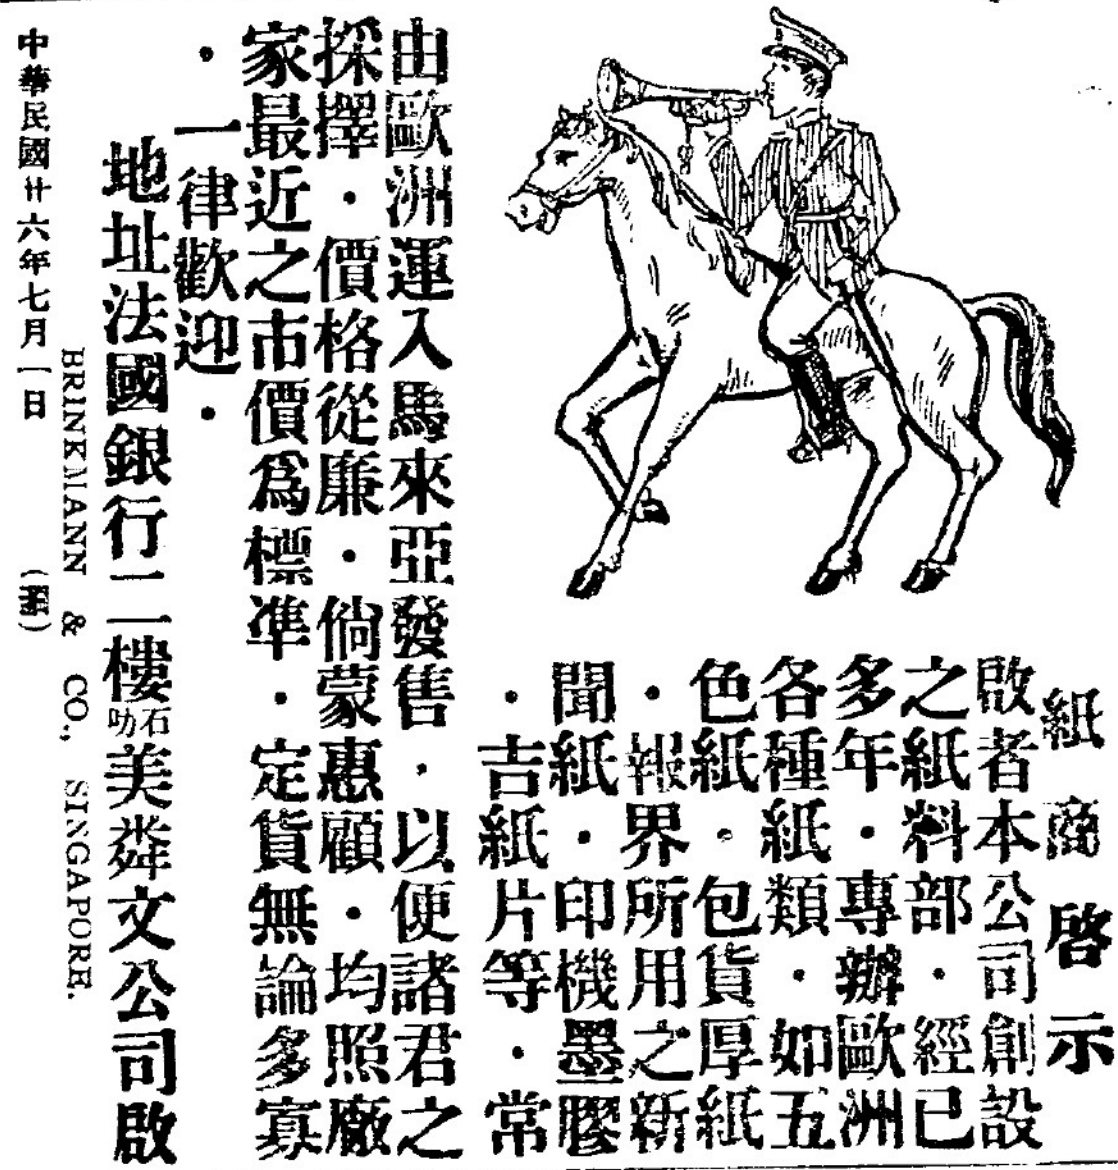 紙商啓示
啟者本公司創設
之紙料部・經已
多年・專辦歐洲
各種紙類・如五
色紙・包貨厚紙
・報界所用之新
聞紙・印機墨膠
・吉紙片等・常
由歐洲運入馬來亞發售・以便諸君之
採擇・價格從廉・倘蒙惠顧・均照廠
家最近之市價爲標準・定貨無論多寡
・一律歡迎・
地址法國銀行二樓石叻美粦文公司啟
BRINKMANN & CO., SINGAPORE.
中華民國廿六年七月一日